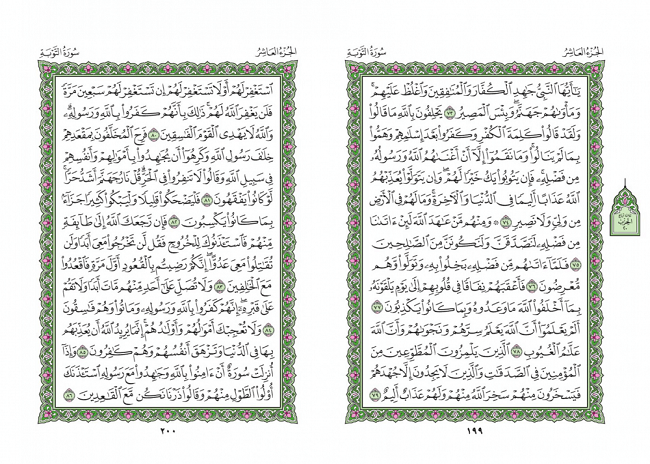 الجُزْءُ العَاشِرُ
سُورَةُ التَّوْبَةِ
يَٰٓأَيُّهَا ٱلنَّبِيُّ جَٰهِدِ ٱلۡكُفَّارَ وَٱلۡمُنَٰفِقِينَ وَٱغۡلُظۡ عَلَيۡهِمۡۚ
وَمَأۡوَىٰهُمۡ جَهَنَّمُۖ وَبِئۡسَ ٱلۡمَصِيرُ ٧٣ يَحۡلِفُونَ بِٱللَّهِ مَا قَالُواْ
وَلَقَدۡ قَالُواْ كَلِمَةَ ٱلۡكُفۡرِ وَكَفَرُواْ بَعۡدَ إِسۡلَٰمِهِمۡ وَهَمُّواْ
بِمَا لَمۡ يَنَالُواْۚ وَمَا نَقَمُوٓاْ إِلَّآ أَنۡ أَغۡنَىٰهُمُ ٱللَّهُ وَرَسُولُهُۥ
مِن فَضۡلِهِۦۚ فَإِن يَتُوبُواْ يَكُ خَيۡرٗا لَّهُمۡۖ وَإِن يَتَوَلَّوۡاْ يُعَذِّبۡهُمُ
ٱللَّهُ عَذَابًا أَلِيمٗا فِي ٱلدُّنۡيَا وَٱلۡأٓخِرَةِۚ وَمَا لَهُمۡ فِي ٱلۡأَرۡضِ
مِن وَلِيّٖ وَلَا نَصِيرٖ ٧٤ ۞ وَمِنۡهُم مَّنۡ عَٰهَدَ ٱللَّهَ لَئِنۡ ءَاتَىٰنَا
مِن فَضۡلِهِۦ لَنَصَّدَّقَنَّ وَلَنَكُونَنَّ مِنَ ٱلصَّٰلِحِينَ
٧٥ فَلَمَّآ ءَاتَىٰهُم مِّن فَضۡلِهِۦ بَخِلُواْ بِهِۦ وَتَوَلَّواْ وَّهُم
مُّعۡرِضُونَ ٧٦ فَأَعۡقَبَهُمۡ نِفَاقٗا فِي قُلُوبِهِمۡ إِلَىٰ يَوۡمِ يَلۡقَوۡنَهُۥ
بِمَآ أَخۡلَفُواْ ٱللَّهَ مَا وَعَدُوهُ وَبِمَا كَانُواْ يَكۡذِبُونَ ٧٧
أَلَمۡ يَعۡلَمُوٓاْ أَنَّ ٱللَّهَ يَعۡلَمُ سِرَّهُمۡ وَنَجۡوَىٰهُمۡ وَأَنَّ ٱللَّهَ
عَلَّٰمُ ٱلۡغُيُوبِ ٧٨ ٱلَّذِينَ يَلۡمِزُونَ ٱلۡمُطَّوِّعِينَ مِنَ
ٱلۡمُؤۡمِنِينَ فِي ٱلصَّدَقَٰتِ وَٱلَّذِينَ لَا يَجِدُونَ إِلَّا جُهۡدَهُمۡ
فَيَسۡخَرُونَ مِنۡهُمۡ سَخِرَ ٱللَّهُ مِنۡهُمۡ وَلَهُمۡ عَذَابٌ أَلِيمٌ ٧٩
١٩٩
الجُزْءُ العَاشِرُ
سُورَةُ التَّوْبَةِ
ٱسۡتَغۡفِرۡ لَهُمۡ أَوۡ لَا تَسۡتَغۡفِرۡ لَهُمۡ إِن تَسۡتَغۡفِرۡ لَهُمۡ سَبۡعِينَ مَرَّةٗ
فَلَن يَغۡفِرَ ٱللَّهُ لَهُمۡۚ ذَٰلِكَ بِأَنَّهُمۡ كَفَرُواْ بِٱللَّهِ وَرَسُولِهِۦۗ
وَٱللَّهُ لَا يَهۡدِي ٱلۡقَوۡمَ ٱلۡفَٰسِقِينَ ٨٠ فَرِحَ ٱلۡمُخَلَّفُونَ بِمَقۡعَدِهِمۡ
خِلَٰفَ رَسُولِ ٱللَّهِ وَكَرِهُوٓاْ أَن يُجَٰهِدُواْ بِأَمۡوَٰلِهِمۡ وَأَنفُسِهِمۡ
فِي سَبِيلِ ٱللَّهِ وَقَالُواْ لَا تَنفِرُواْ فِي ٱلۡحَرِّۗ قُلۡ نَارُ جَهَنَّمَ أَشَدُّ حَرّٗاۚ
لَّوۡ كَانُواْ يَفۡقَهُونَ ٨١ فَلۡيَضۡحَكُواْ قَلِيلٗا وَلۡيَبۡكُواْ كَثِيرٗا جَزَآءَۢ
بِمَا كَانُواْ يَكۡسِبُونَ ٨٢ فَإِن رَّجَعَكَ ٱللَّهُ إِلَىٰ طَآئِفَةٖ
مِّنۡهُمۡ فَٱسۡتَـٔۡذَنُوكَ لِلۡخُرُوجِ فَقُل لَّن تَخۡرُجُواْ مَعِيَ أَبَدٗا وَلَن
تُقَٰتِلُواْ مَعِيَ عَدُوًّاۖ إِنَّكُمۡ رَضِيتُم بِٱلۡقُعُودِ أَوَّلَ مَرَّةٖ فَٱقۡعُدُواْ
مَعَ ٱلۡخَٰلِفِينَ ٨٣ وَلَا تُصَلِّ عَلَىٰٓ أَحَدٖ مِّنۡهُم مَّاتَ أَبَدٗا وَلَا تَقُمۡ
عَلَىٰ قَبۡرِهِۦٓۖ إِنَّهُمۡ كَفَرُواْ بِٱللَّهِ وَرَسُولِهِۦ وَمَاتُواْ وَهُمۡ فَٰسِقُونَ
٨٤ وَلَا تُعۡجِبۡكَ أَمۡوَٰلُهُمۡ وَأَوۡلَٰدُهُمۡۚ إِنَّمَا يُرِيدُ ٱللَّهُ أَن يُعَذِّبَهُم
بِهَا فِي ٱلدُّنۡيَا وَتَزۡهَقَ أَنفُسُهُمۡ وَهُمۡ كَٰفِرُونَ ٨٥ وَإِذَآ
أُنزِلَتۡ سُورَةٌ أَنۡ ءَامِنُواْ بِٱللَّهِ وَجَٰهِدُواْ مَعَ رَسُولِهِ ٱسۡتَـٔۡذَنَكَ
أُوْلُواْ ٱلطَّوۡلِ مِنۡهُمۡ وَقَالُواْ ذَرۡنَا نَكُن مَّعَ ٱلۡقَٰعِدِينَ ٨٦
٢٠٠